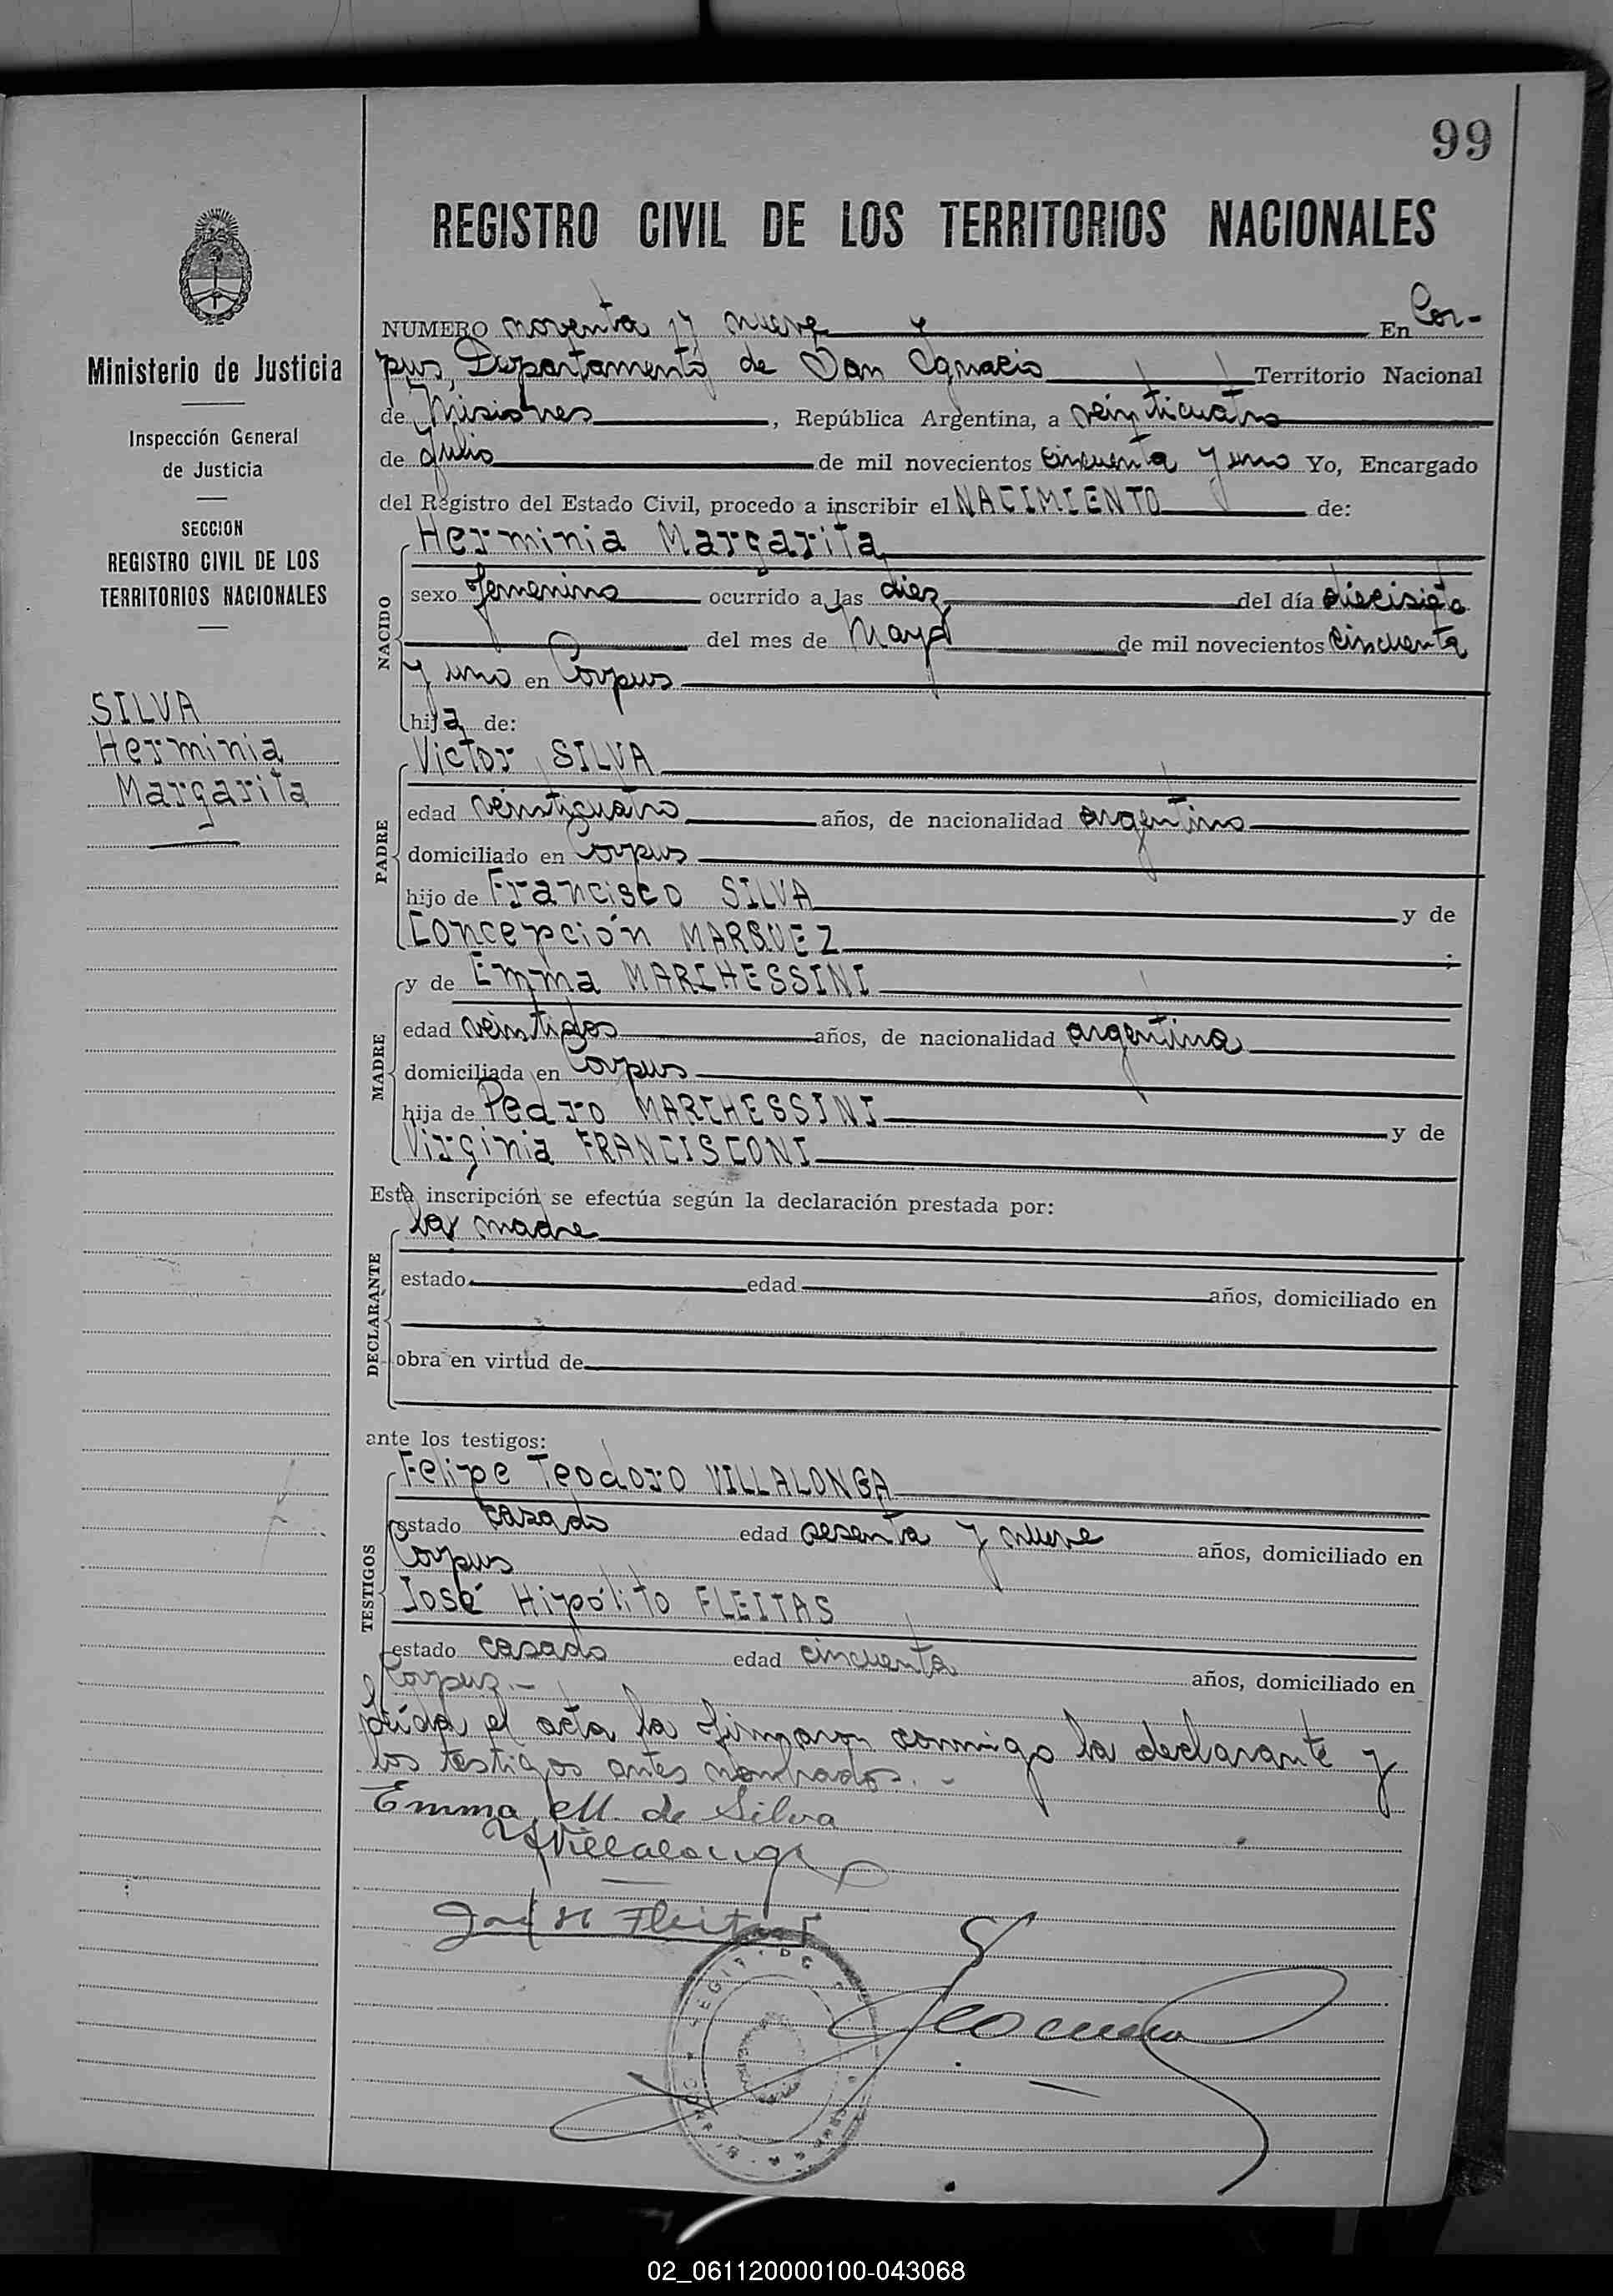 99
REGISTRO CIVIL DE LOS TERRITORIOS NACIONALES
Ministerio de Justicia
Inspección General
de Justicia
SECCION
REGISTRO CIVIL DE LOS
TERRITORIOS NACIONALES
SILVA
Herminia
Margarita
NUMERO noventa y nueve En Cor-
pus, Departamento de San Ignacio Territorio Nacional
de Misiones, República Argentina, a veinticuatro
de Julio de mil novecientos cincuenta y uno Yo, Encargado
del Registro del Estado Civil, procedo a inscribir el NACIMIENTO de:
NACIDO
Herminia Margarita
sexo femenino ocurrido a las diez del día diecisiete
del mes de Mayo de mil novecientos cincuenta
y uno en Corpus
hija de:
PADRE
Victor SILVA
edad veinticuatro años, de nacionalidad argentino
domiciliado en Corpus
hijo de Francisco SILVA y de
Concepción MARQUEZ ;
MADRE
y de Emma MARCHESSINI
edad veintidos años, de nacionalidad argentina
domiciliada en Corpus
hija de Pedro MARCHESSINI y de
Virginia FRANCISCONI
Esta inscripción se efectúa según la declaración prestada por:
DECLARANTE
la madre
estado edad años, domiciliado en
obra en virtud de
ante los testigos:
TESTIGOS
Felipe Teodoro VILLALONGA
estado casado edad sesenta y nueve años, domiciliado en
Corpus
José Hipólito FLEITAS
estado casado edad cincuenta años, domiciliado en
Corpus.-
Leída el acta la firmaron conmigo la declarante y
los testigos antes nombrados.-
Emma M. de Silva
Villalonga
José H Fleitas
02_061120000100-043068